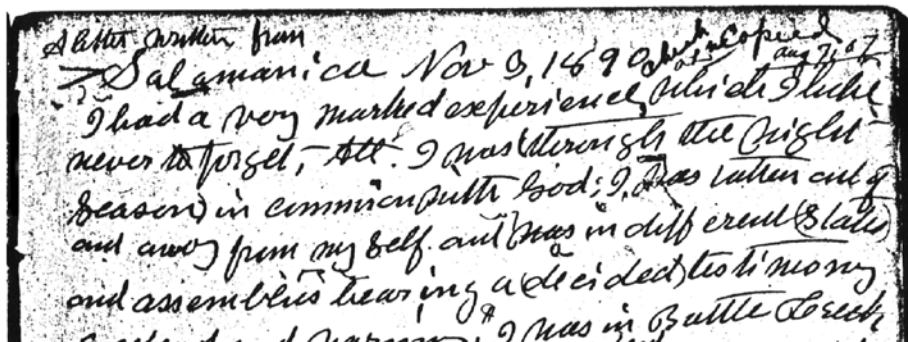 A letter written from
Salamanica Nov 3, 1890 Copied
Aug 7, 07
I had a very marked experience, which I hope
never to forget, I was through the night
season in communion with God; I was taken out of
and away from my self and was in different States
and assemblies bearing a decided testimony
I was in Battle Creek